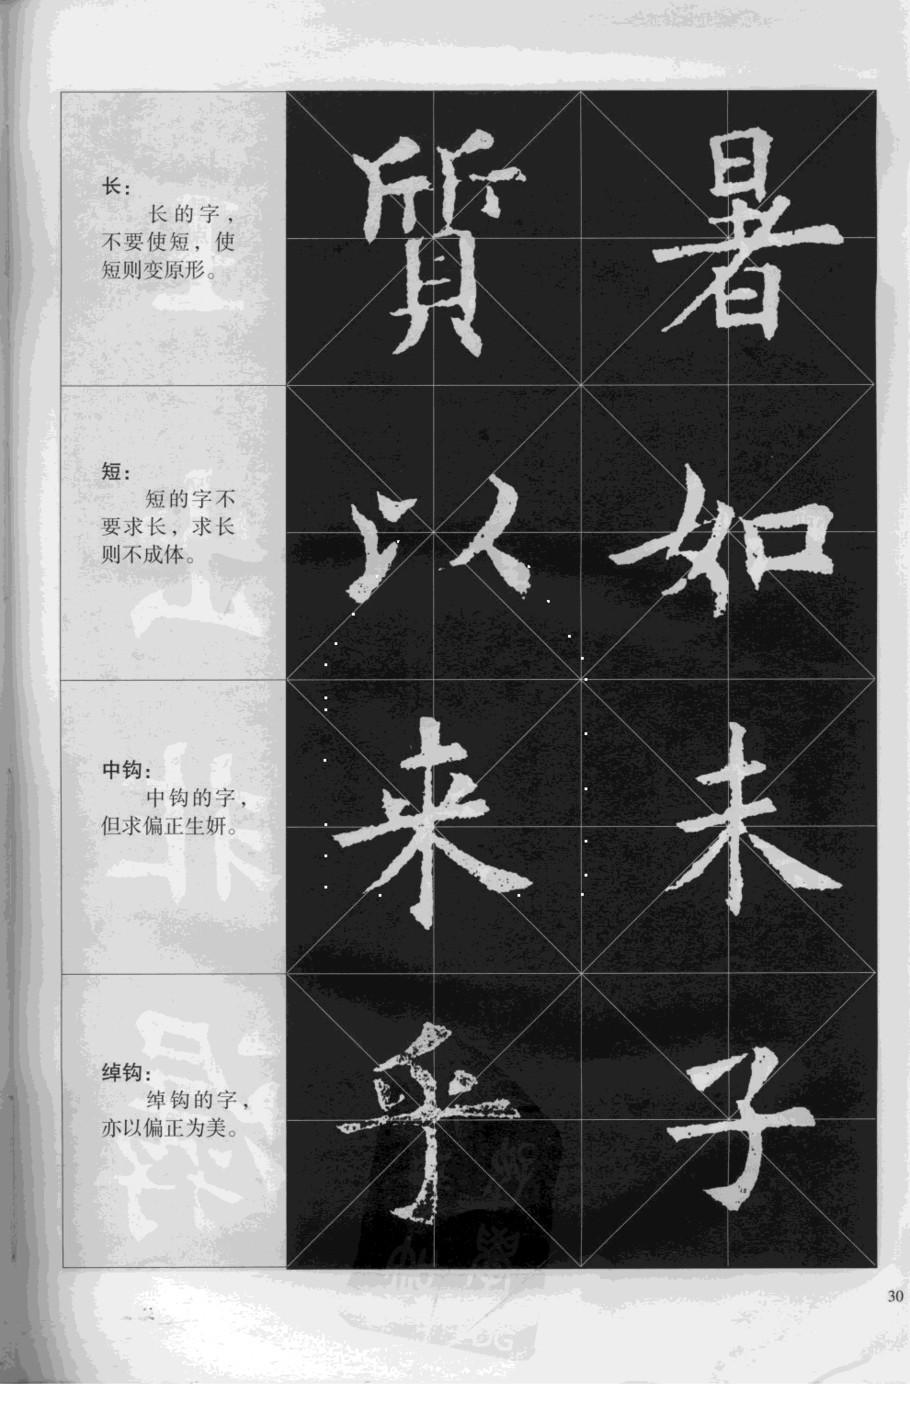 长：
长的字，
不要使短，使
短则变原形。
質
暑
短：
短的字不
要求长，求长
则不成体。
以
如
中钩：
中钩的字，
但求偏正生妍。
来
未
绰钩：
绰钩的字，
亦以偏正为美。
乎
子
30